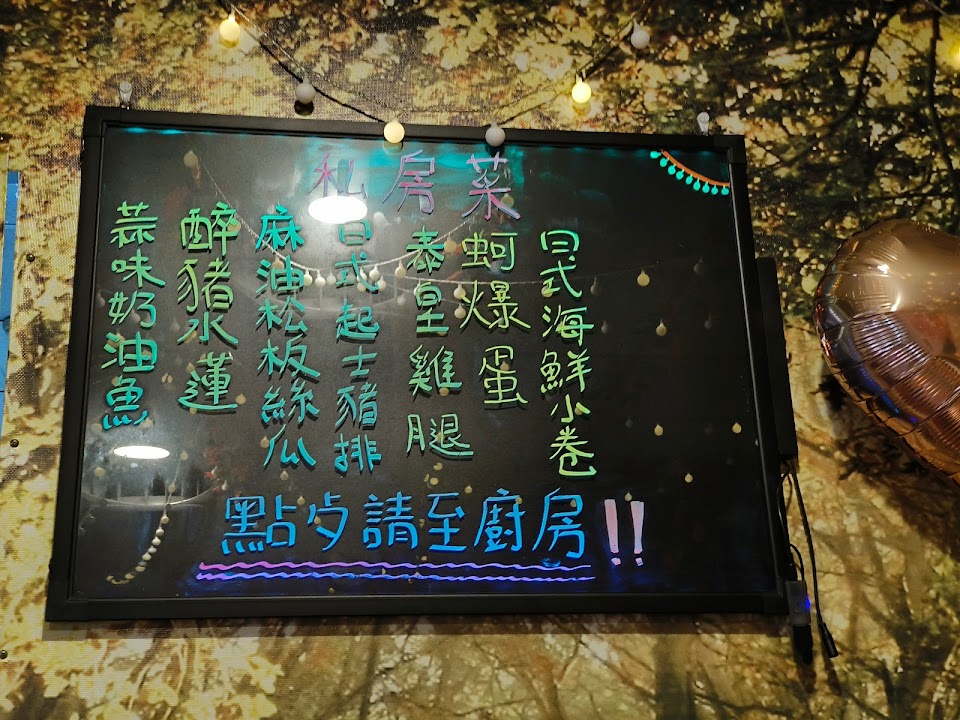 私房菜
日式海鮮小卷
蚵爆蛋
泰皇雞腿
日式起士豬排
麻油松板絲瓜
醉豬水蓮
蒜味奶油魚
點歺請至廚房!!